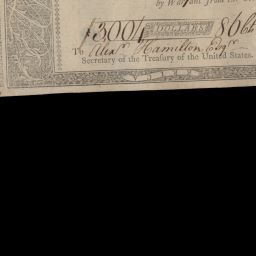 by Warrant from the
3004 DOLLARS 86
To Alexr. Hamilton Esqr.
Secretary of the Treasury of the United States.